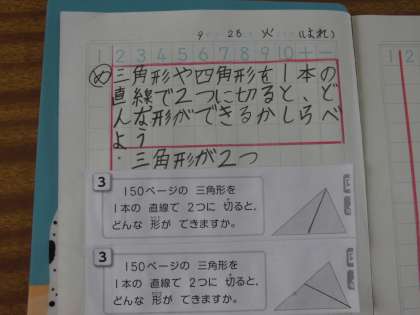 9 26 火 (はれ)
1 2 3 4 5 6 7 8 9 10 + −
め 三角形や四角形を1本の
直線で2つに切ると、ど
んな形ができるかしらべ
よう
・三角形が2つ
3
150ページの 三角形を
1本の 直線で 2つに 切ると、
どんな 形が できますか。
3
150ページの 三角形を
1本の 直線で 2つに 切ると、
どんな 形が できますか。
1 2